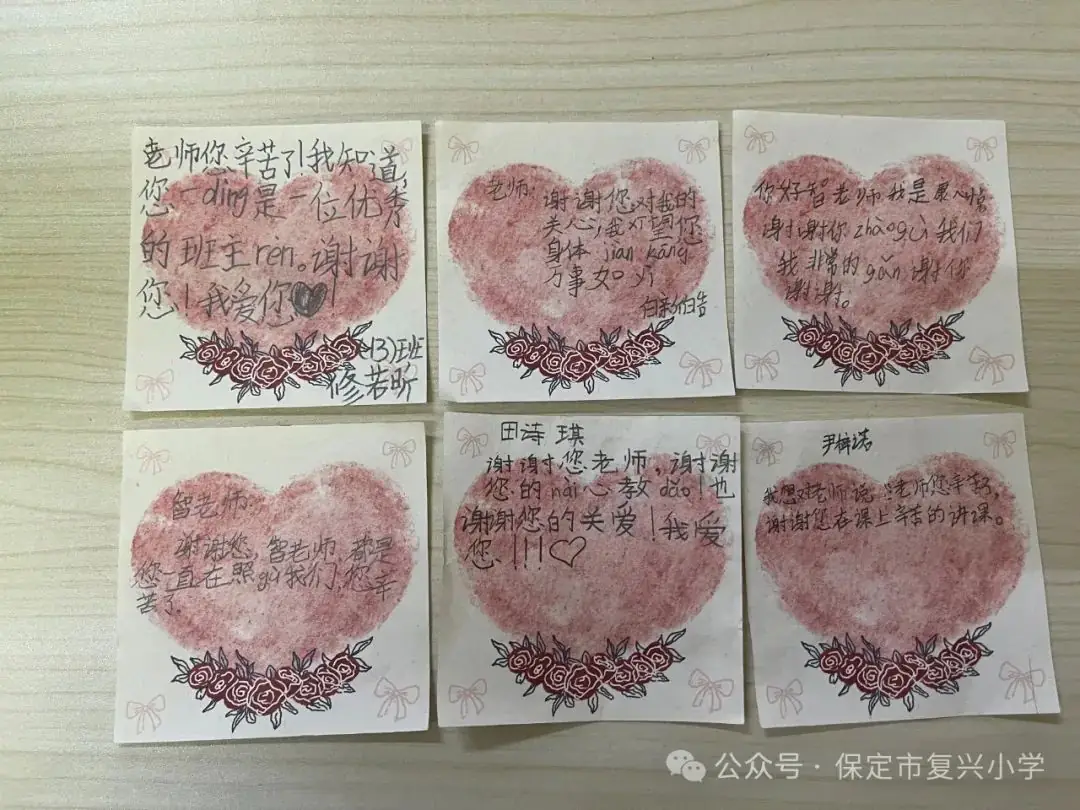 老师您辛苦了！我知道，
您一dìng是一位优秀
的班主rèn。谢谢
您！我爱你
1(3)班
修若昕
老师：谢谢您对我的
关心，我希望您
身体 jiàn kāng
万事如 yì
你好智老师我是
谢谢你zhào gù我们
我非常的gǎn谢你
谢谢。
智老师：
谢谢您，智老师，都是
您一直在照gù我们，您辛
苦了
田诗琪
谢谢您老师，谢谢
您的nài心教dǎo！也
谢谢您的关爱！我爱
您！！！
我想对老师说：老师您辛苦了，
谢谢您在课上辛苦的讲课。
公众号·保定市复兴小学